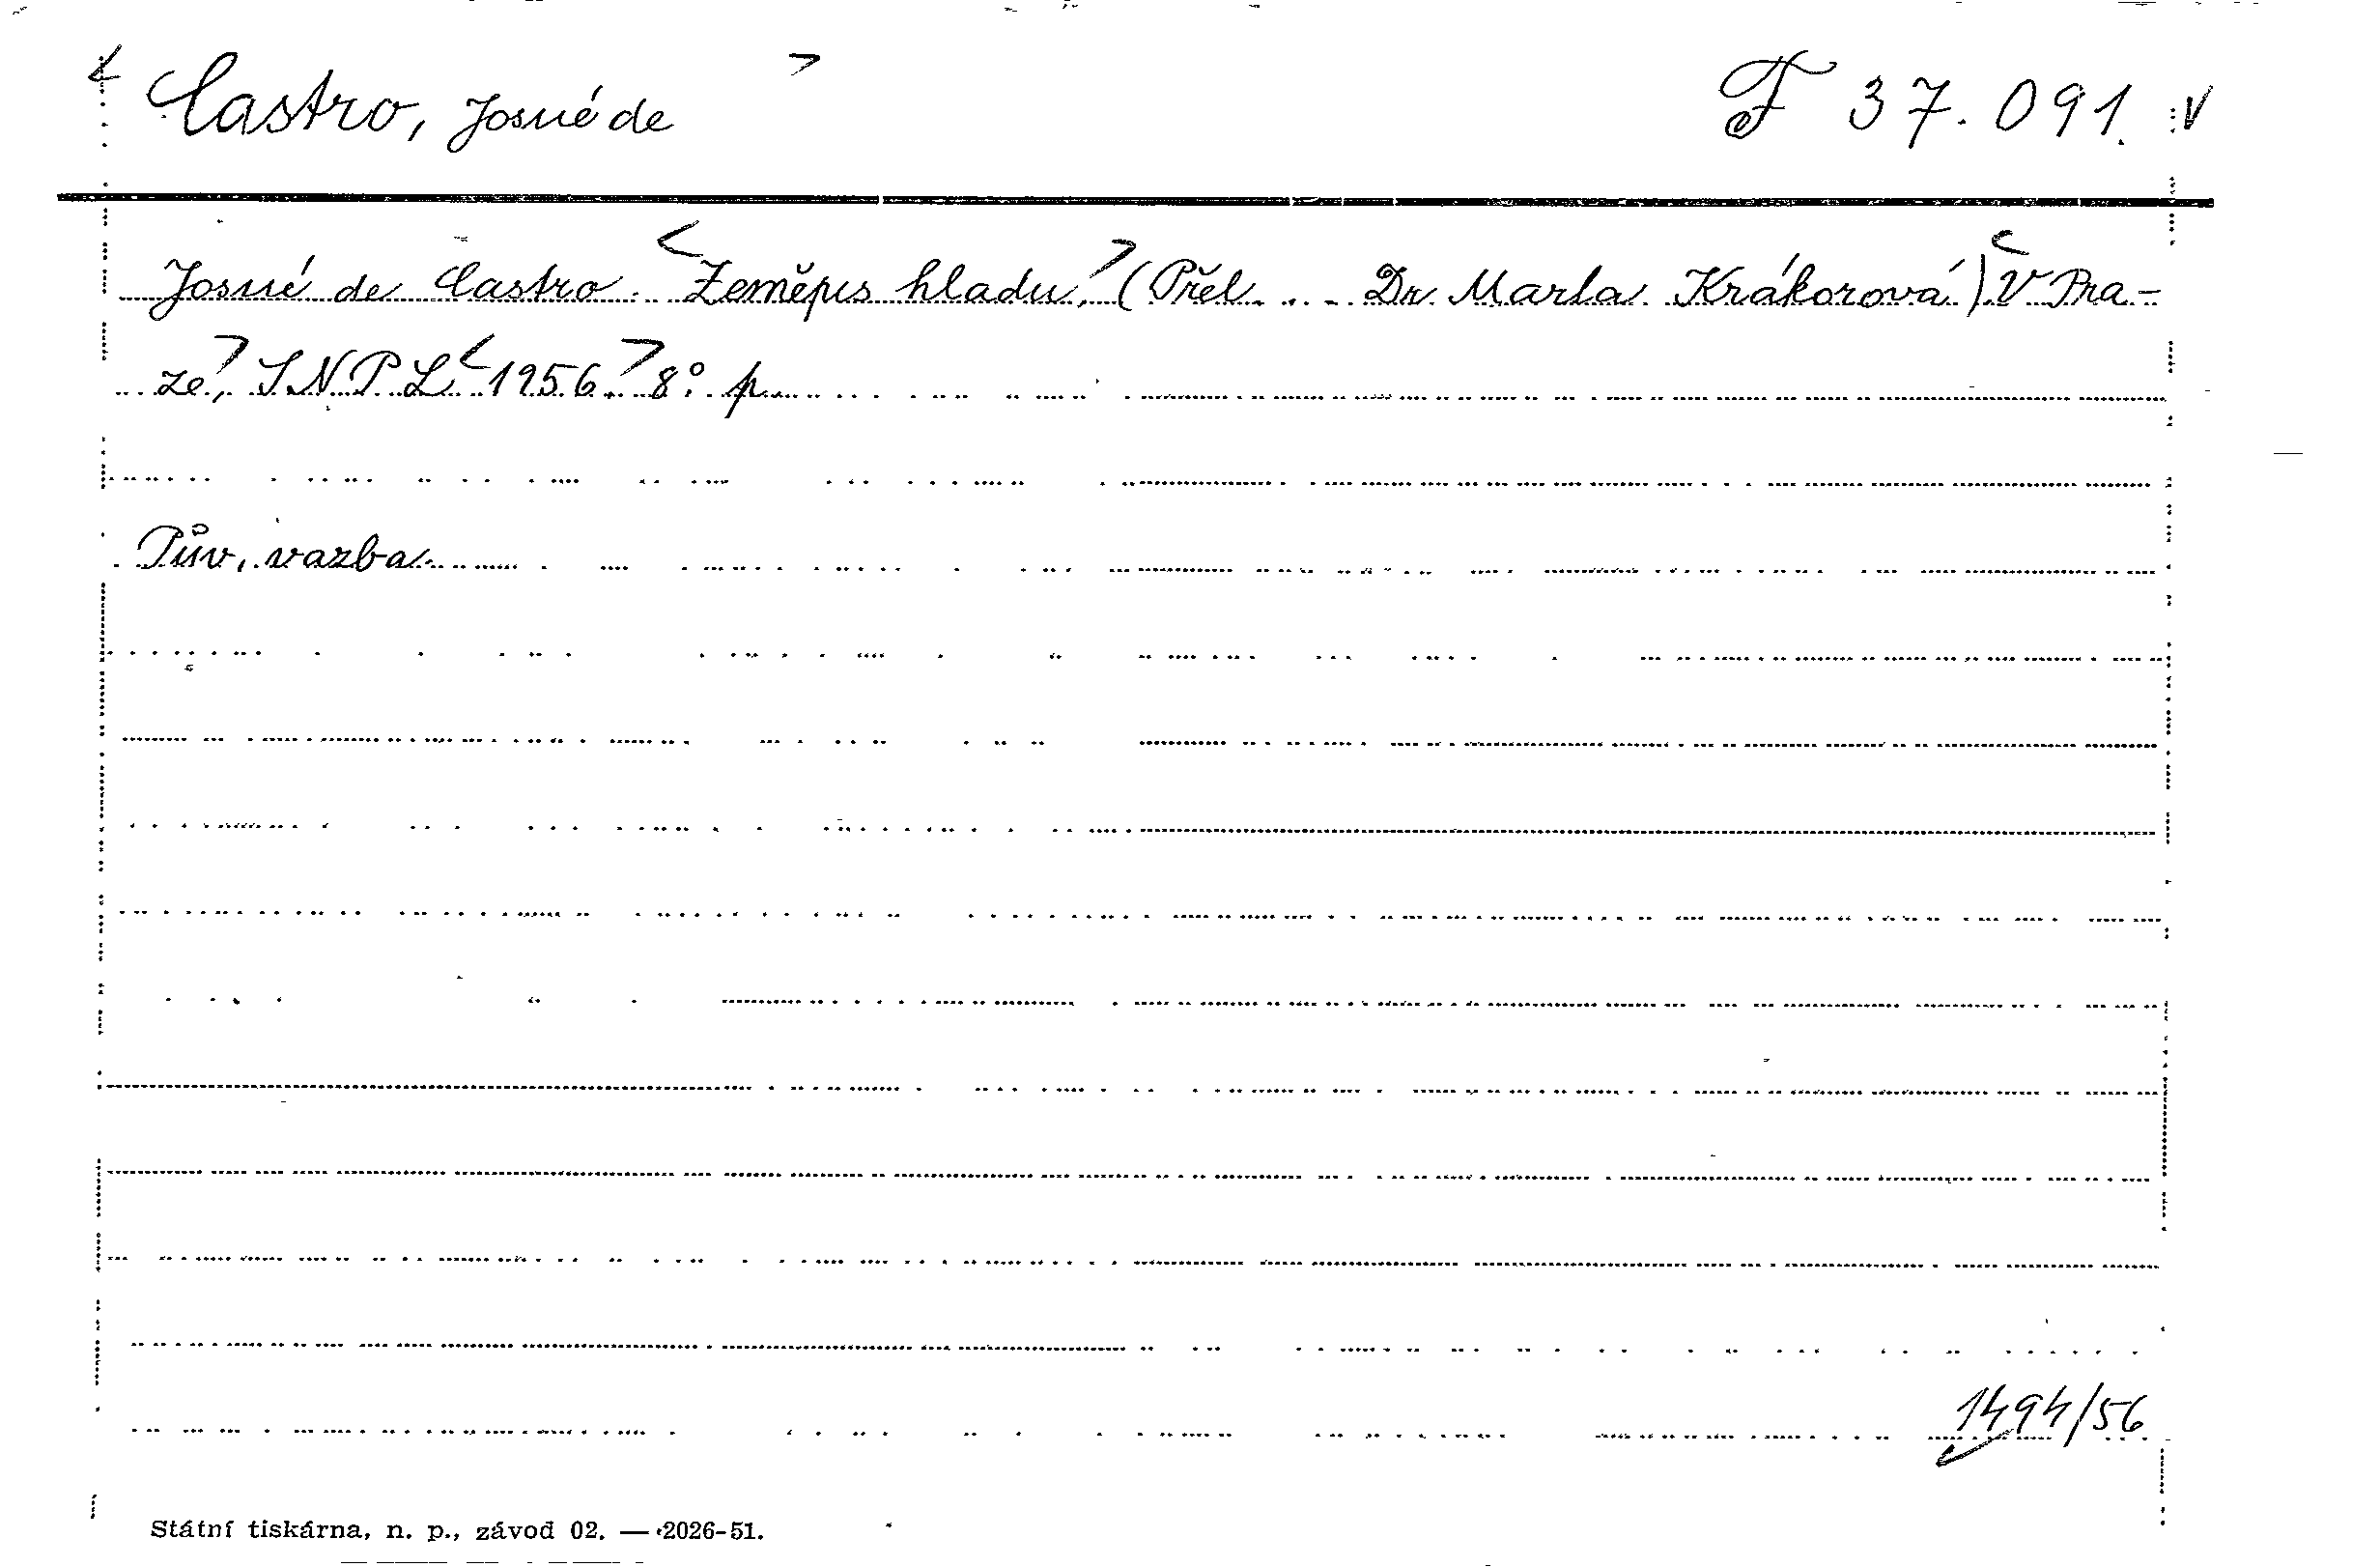 < Castro, Josué de > F 37.091. v
Josué de Castro. <Zeměpis hladu.> (Přel. .. Dr. Marta Krákorová) <V Pra-
ze,> SNPL <1956.> 8° p.
Pův. vazba.
1494/56
Státní tiskárna, n. p., závod 02. — 2026-51.